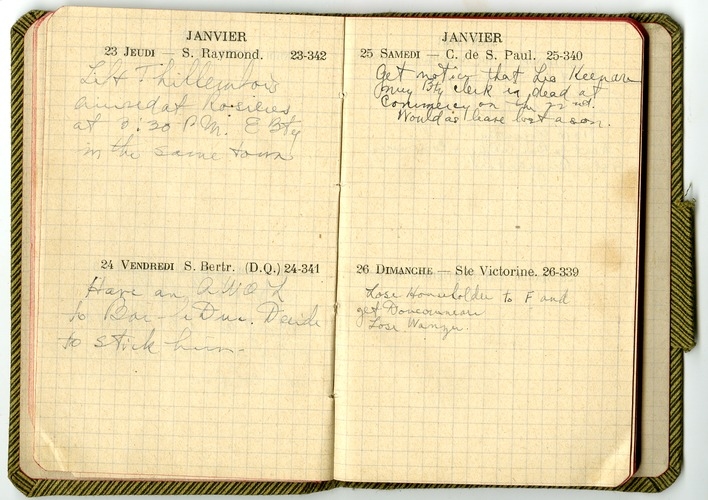 JANVIER
23 JEUDI — S. Raymond. 23-342
Left Thillembois
arrived at Rosieres
at 2:30 P.M. E Bty
in the same town
24 VENDREDI S. Bertr. (D.Q.) 24-341
Have an A.W.O.L
to Bar-le Duc. Decide
to stick him.
JANVIER
25 SAMEDI — C. de S. Paul. 25-340
Get notice that Leo
my Bty clerk is dead at
Commercy on the 22
Would as leave lost a son.
26 DIMANCHE — Ste Victorine. 26-339
Lose Householder to F and
get
Lose